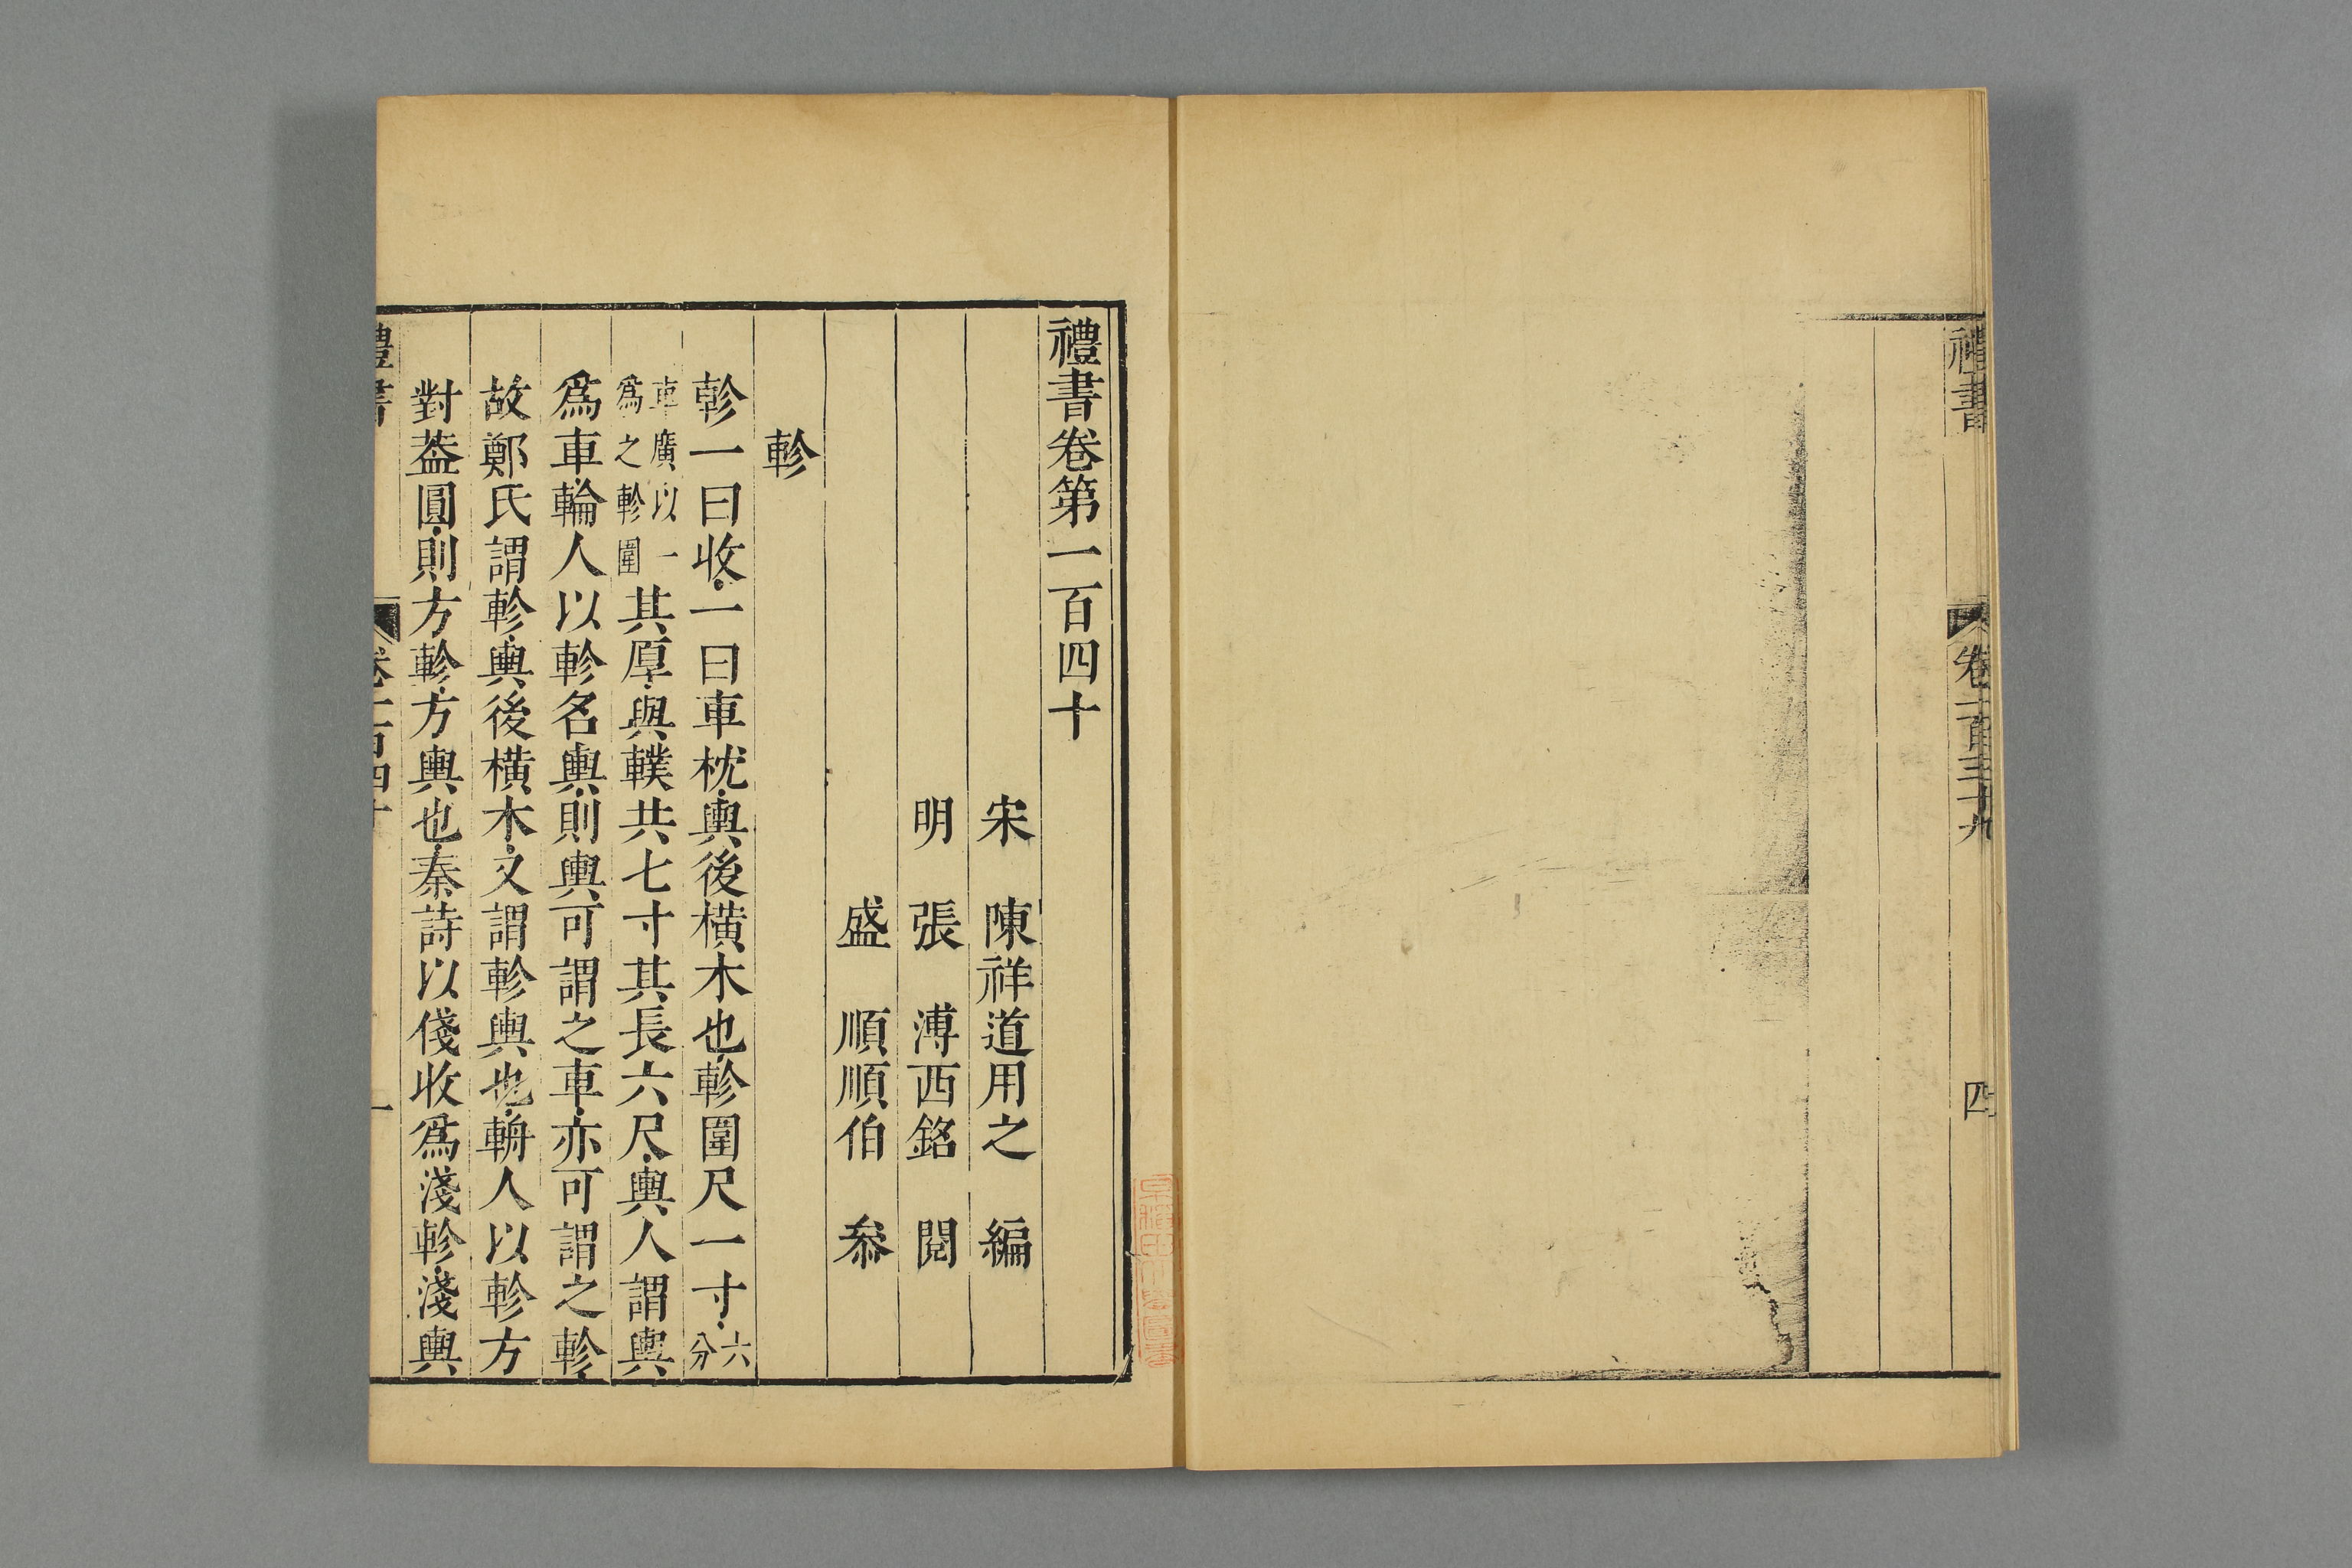 禮書
卷一百三十九
四
禮書卷第一百四十
宋 陳祥道用之 編
明 張 溥西銘 閱
盛 順順伯 叅
軫
軫一曰收一曰車枕輿後橫木也軫圍尺一寸六分
車廣以一爲之軫圍其厚與轐共七寸其長六尺輿人謂輿
爲車輪人以軫名輿則輿可謂之車亦可謂之軫
故鄭氏謂軫輿後橫木又謂軫輿也輈人以軫方
對葢圓則方軫方輿也秦詩以俴收爲淺軫淺輿
禮書
卷一百四十
一